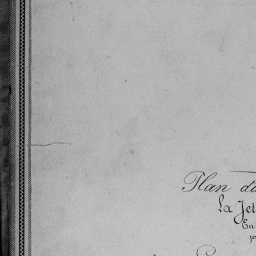 Plan d
La Jet
En